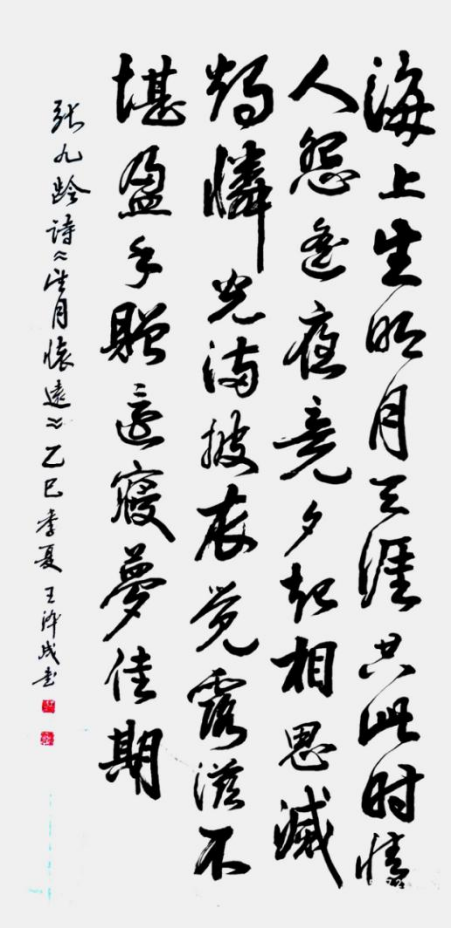 海上生明月天涯共此时情
人怨遥夜竟夕起相思滅
燭憐光满披衣觉露滋不
堪盈手贈還寢夢佳期
张九龄詩《望月懷遠》乙巳季夏 王成书